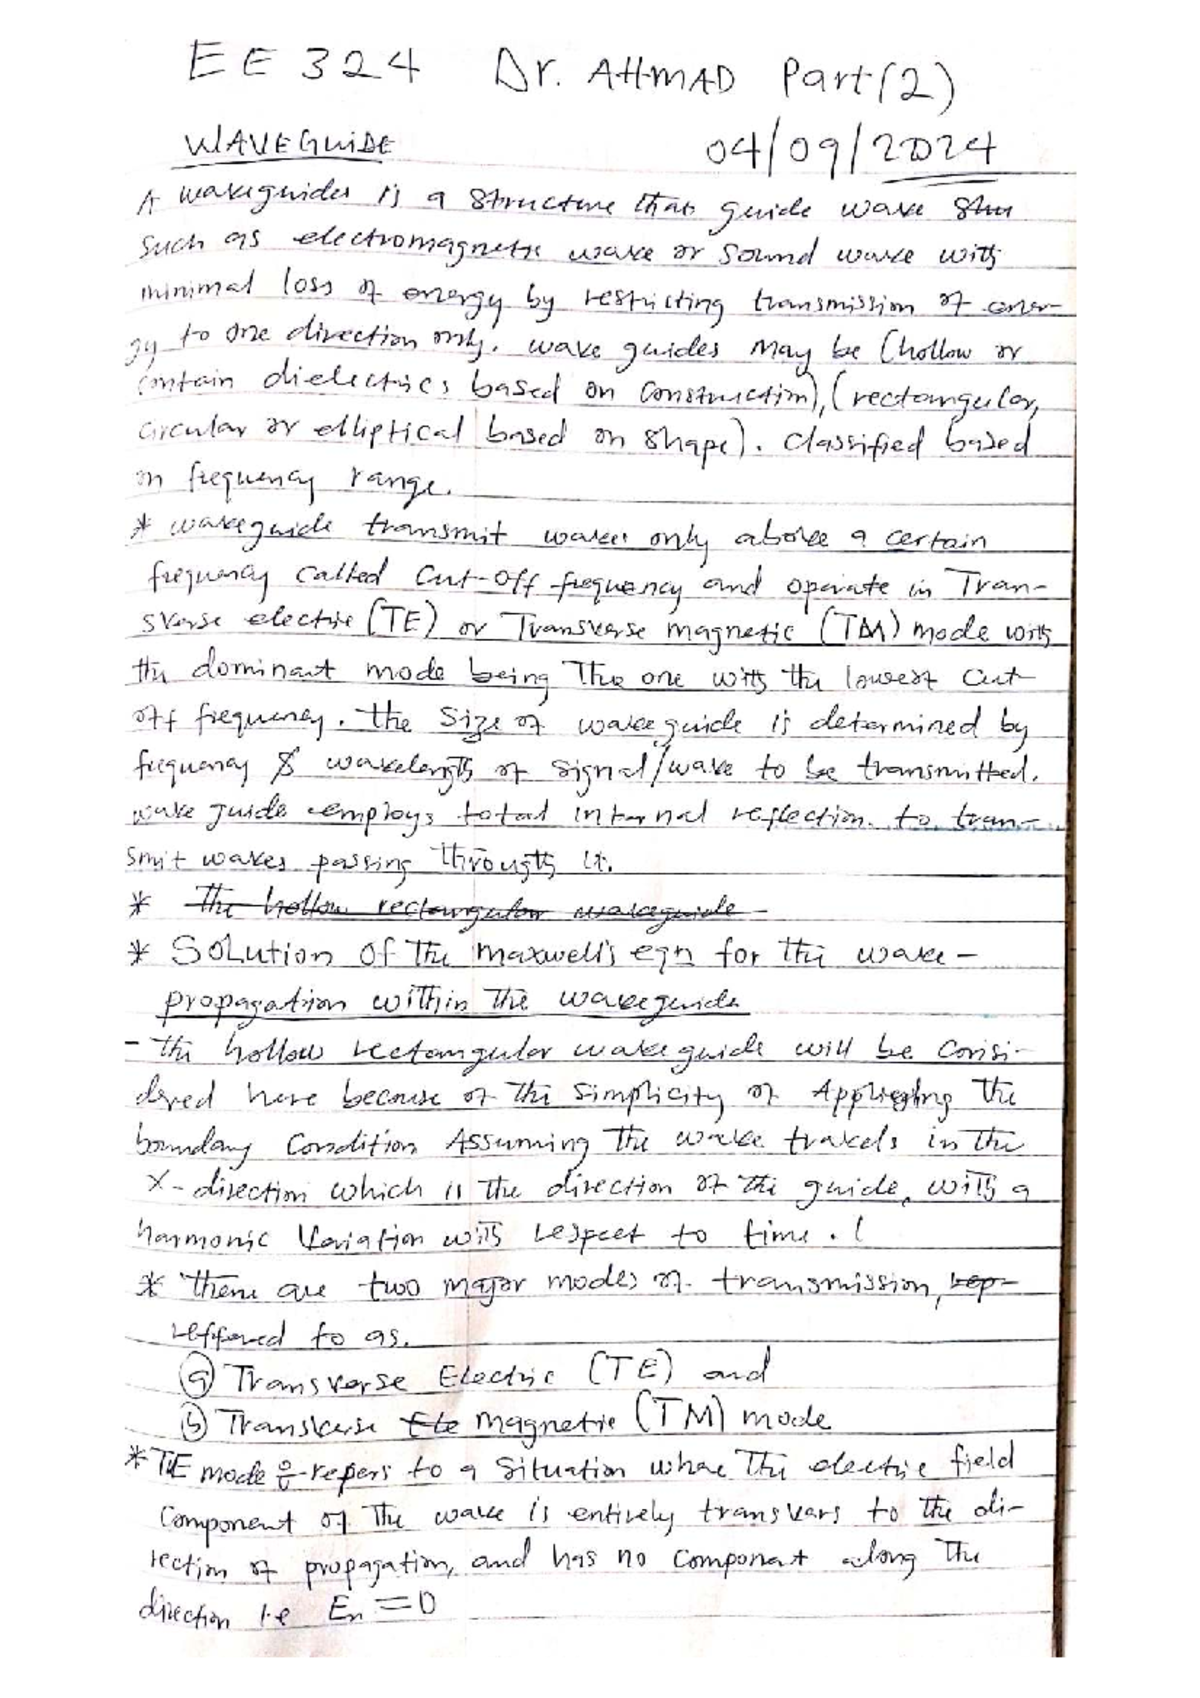 EE 324 Dr. AHMAD Part (2)
WAVEGUIDE 04/09/2024
A waveguides is a structure that guide wave
such as electromagnetic wave or sound wave with
minimal loss of energy by restricting transmission of ener-
gy to one direction only. wave guides may be (hollow or
contain dielectrics based on construction), (rectangular,
circular or elliptical based on shape). Classified based
on frequency range.
* waveguide transmit waves only above a certain
frequency called cut-off frequency and operate in Tran-
sverse electric (TE) or Transverse magnetic (TM) mode with
the dominant mode being the one with the lowest cut
off frequency. the size of waveguide is determined by
frequency & wavelength of signal/wave to be transmitted.
wave guide employs total internal reflection to tran-
smit waves passing through it.
* The hollow rectangular waveguide -
* Solution of the maxwell's eqn for the wave -
propagation within the waveguide
- the hollow rectangular waveguide will be consi-
dered here because of the simplicity of Applying the
boundary condition Assuming the wave travels in the
X-direction which is the direction of the guide, with a
harmonic variation with respect to time. (
* there are two major modes of transmission, rep-
reffered to as.
(a) Transverse Electric (TE) and
(b) Transverse Ele magnetic (TM) mode
* TE mode %-refers to a situation where the electric field
component of the wave is entirely transvers to the di-
rection of propagation, and has no component along the
direction i.e En = 0